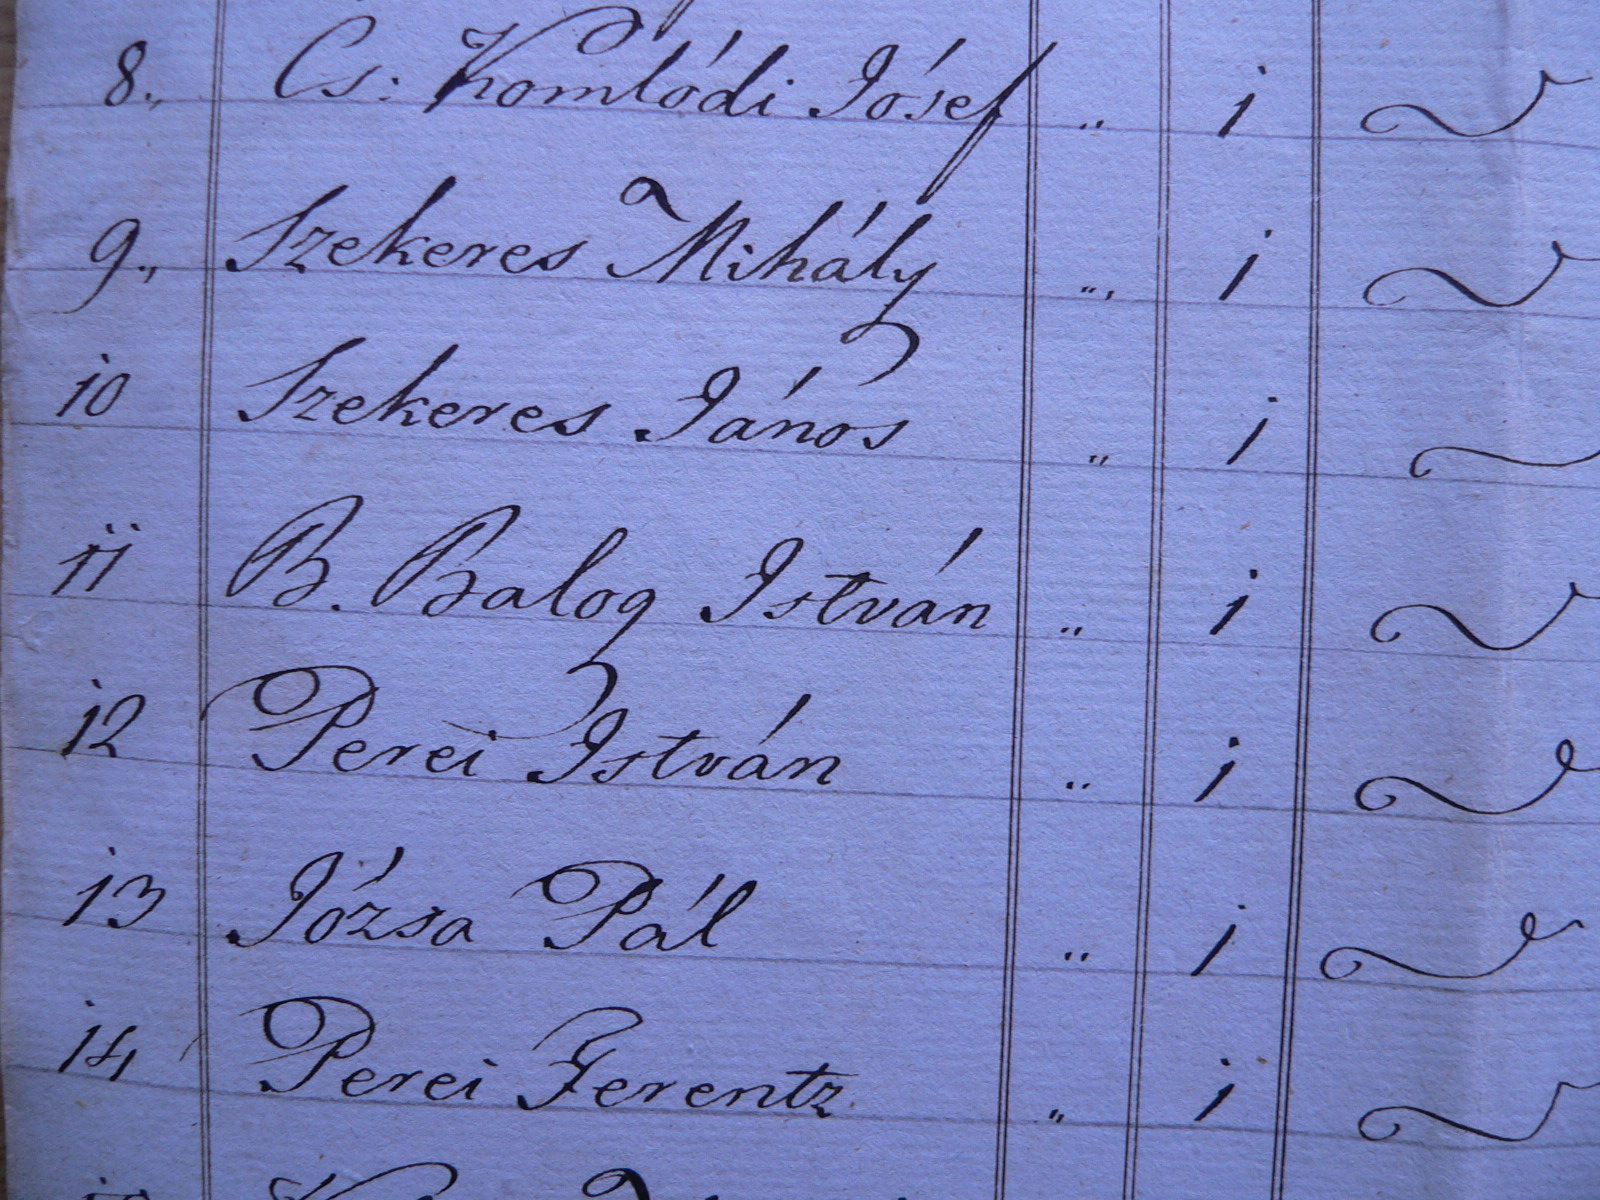 8., Cs: Komlódi Jósef „ 1
9., Szekeres Mihály „, 1
10 Szekeres János „ 1
11 B. Balog István „ 1
12 Perei István „ 1
13 Józsa Pál „ 1
14 Perei Ferentz „ 1